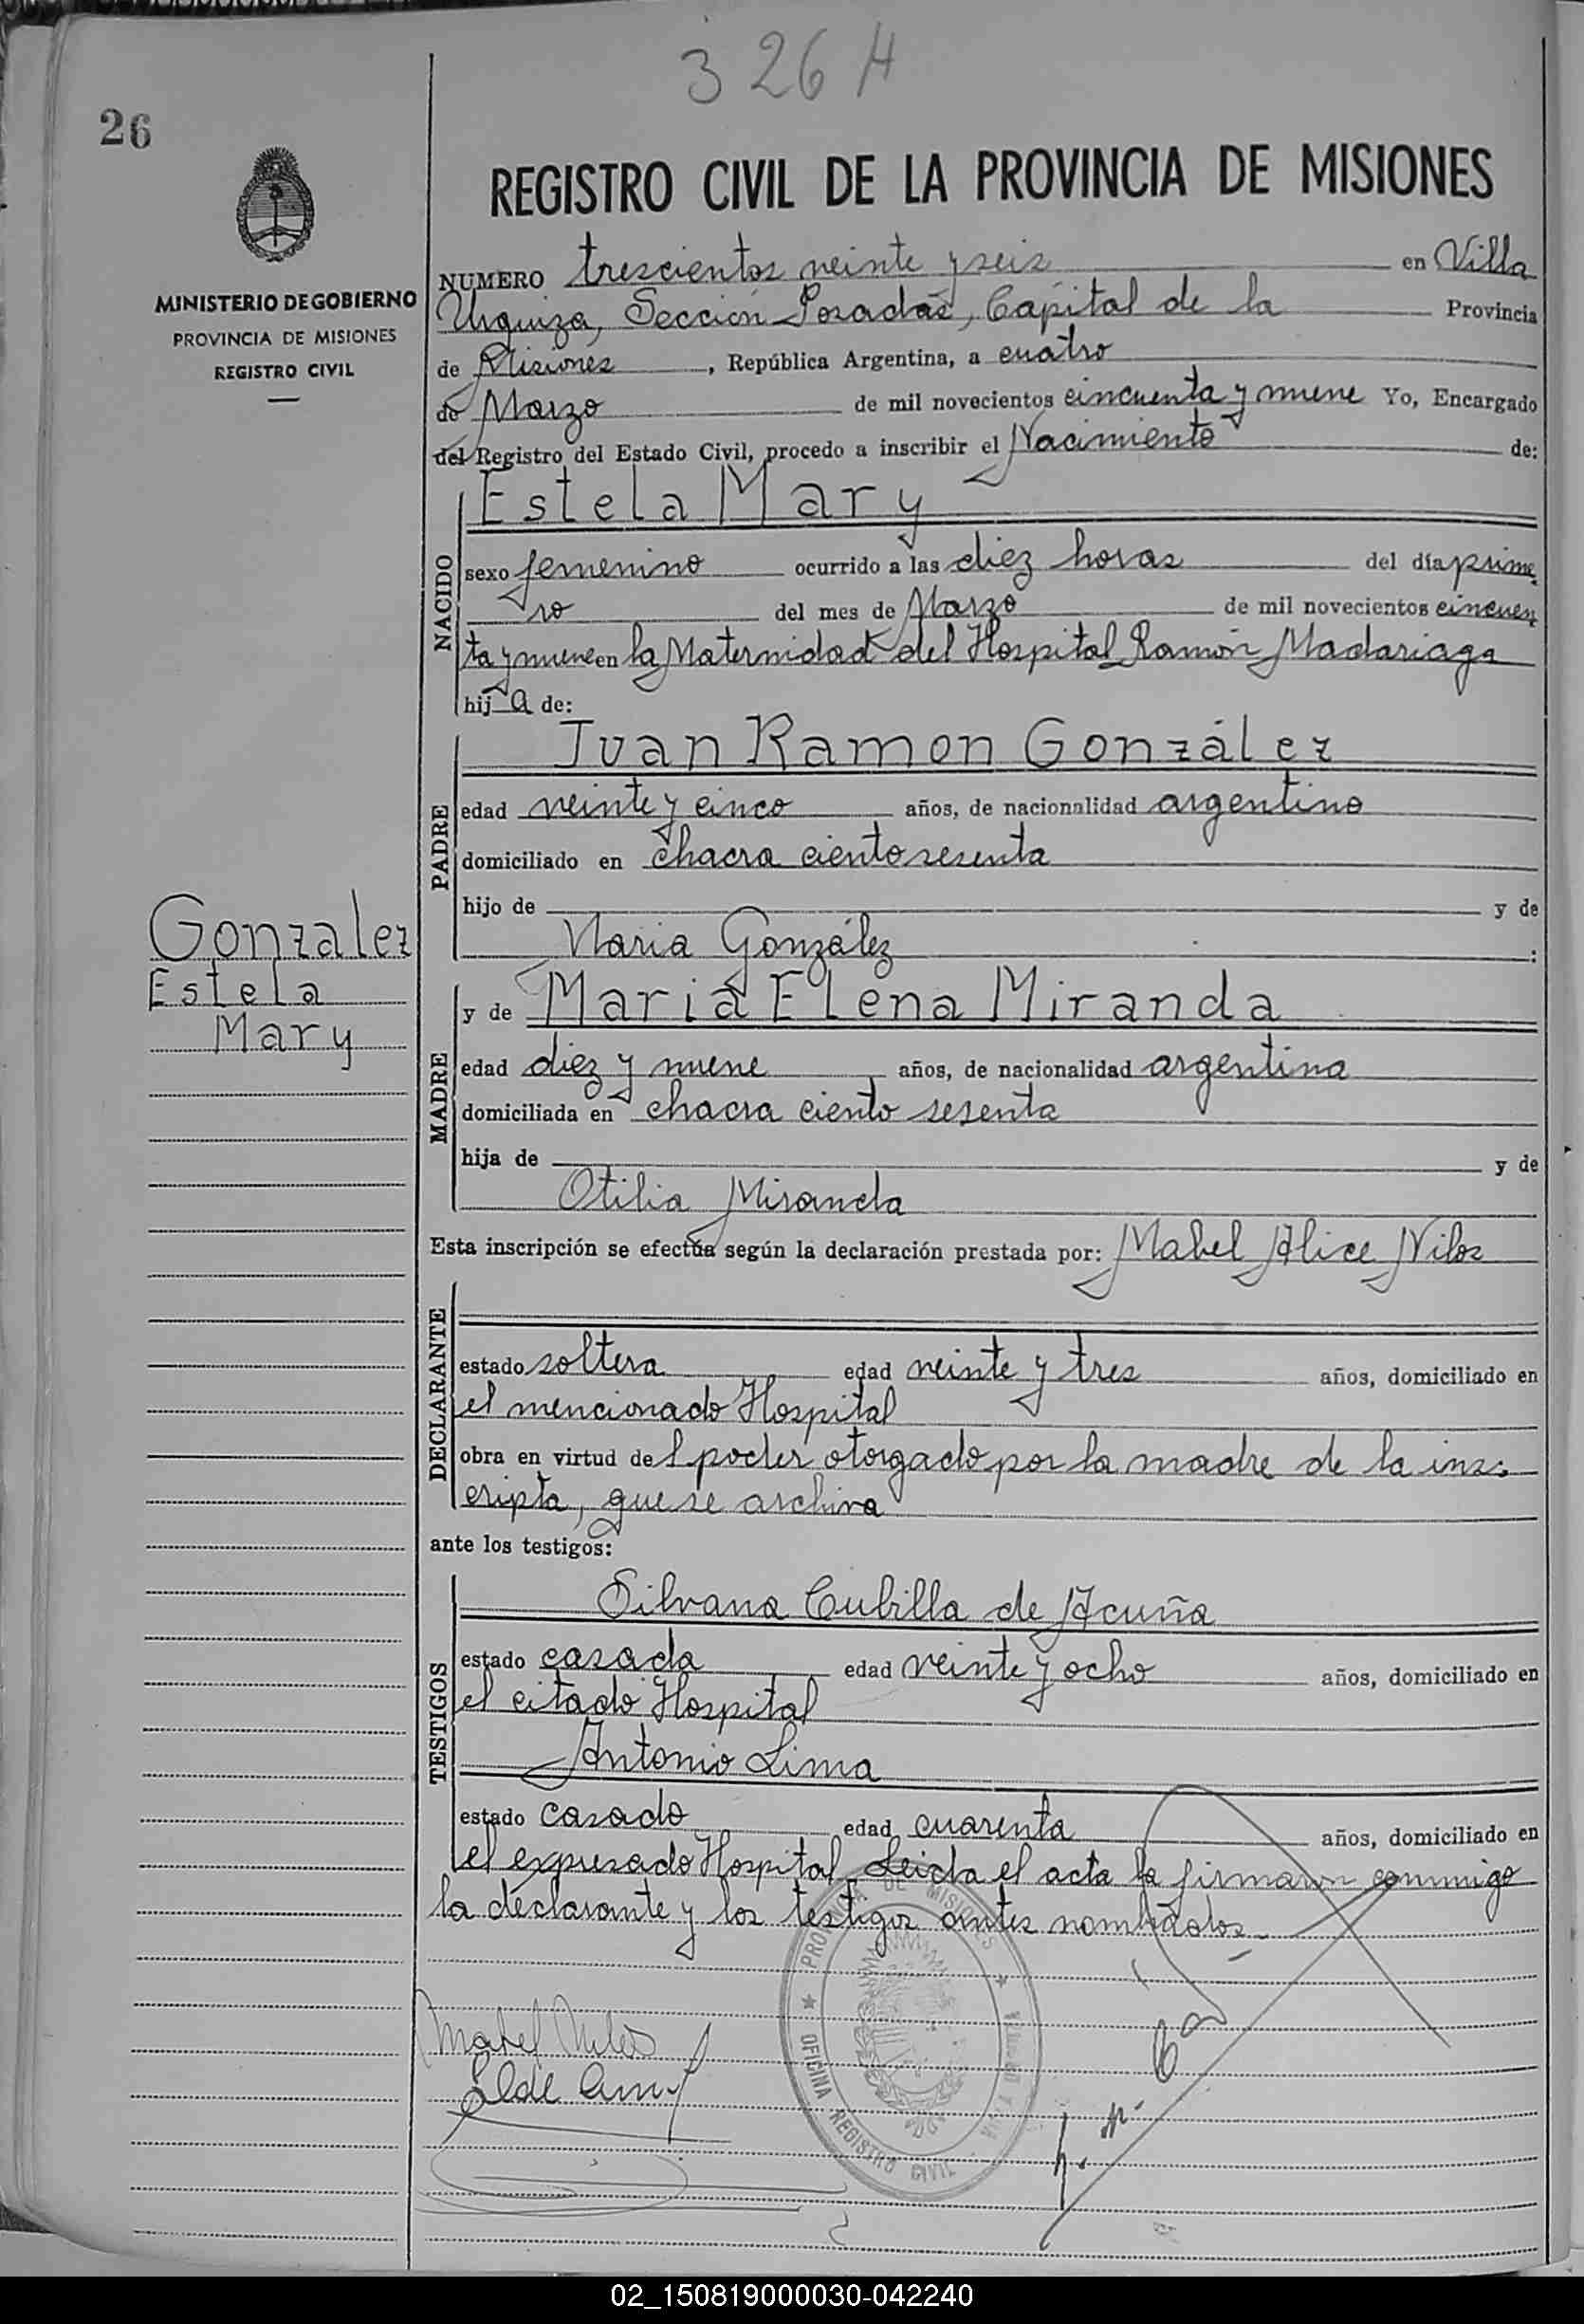 326 H
26
REGISTRO CIVIL DE LA PROVINCIA DE MISIONES
MINISTERIO DE GOBIERNO
PROVINCIA DE MISIONES
REGISTRO CIVIL
NUMERO trescientos veinte y seis en Villa
Urquiza, Sección Posadas, Capital de la Provincia
de Misiones, República Argentina, a cuatro
de Marzo de mil novecientos cincuenta y nueve Yo, Encargado
del Registro del Estado Civil, procedo a inscribir el Nacimiento de:
NACIDO
Estela Mary
sexo femenino ocurrido a las diez horas del día prime
ro del mes de Marzo de mil novecientos cincuen
ta y nueve en la Maternidad del Hospital Ramón Madariaga
hija de:
PADRE
Juan Ramon González
edad veinte y cinco años, de nacionalidad argentino
domiciliado en chacra ciento sesenta
hijo de y de
Maria González :
Gonzalez
Estela
Mary
MADRE
y de Maria Elena Miranda
edad diez y nueve años, de nacionalidad argentina
domiciliada en chacra ciento sesenta
hija de y de
Otilia Miranda
Esta inscripción se efectúa según la declaración prestada por: Mabel Alice Nilos
DECLARANTE
estado soltera edad veinte y tres años, domiciliado en
el mencionado Hospital
obra en virtud del poder otorgado por la madre de la ins-
cripta, que se archiva
ante los testigos:
TESTIGOS
Silvana Cubilla de Acuña
estado casada edad veinte y ocho años, domiciliado en
el citado Hospital
Antonio Lima
estado casado edad cuarenta años, domiciliado en
el expresado Hospital. Leida el acta la firmaron conmigo
la declarante y los testigos antes nombrados.
PROVINCIA DE MISIONES
OFICINA REGISTRO CIVIL
Mabel
02_150819000030-042240